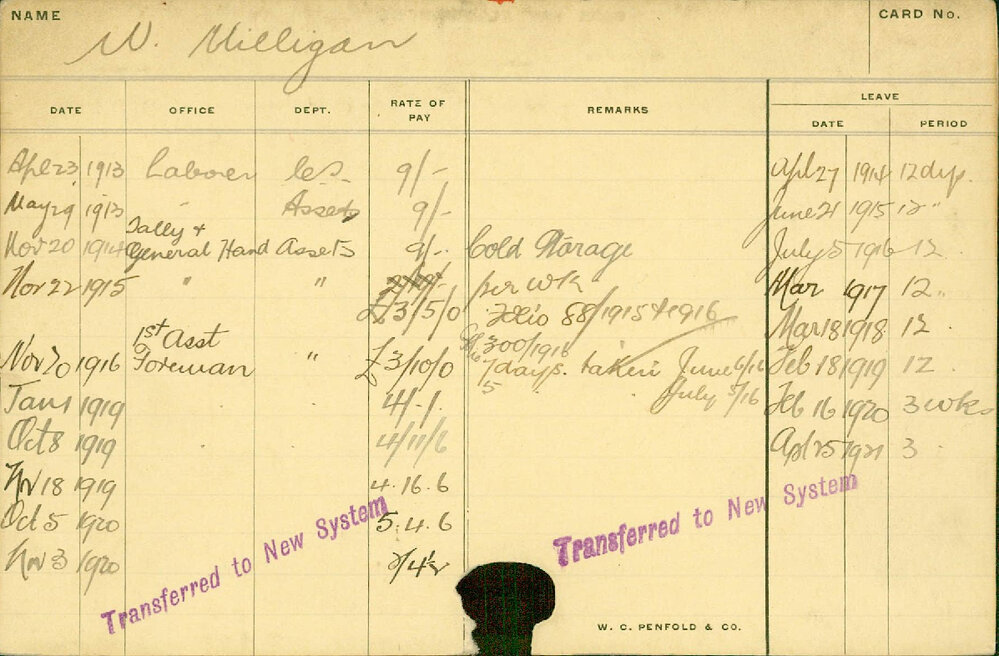 NAME
W. Milligan
CARD No.
DATE OFFICE DEPT. RATE OF PAY REMARKS LEAVE
DATE PERIOD
Apl 23 1913 Laborer C.S. 9/- Apl 27 1914 12 dys.
May 29 1913 " Assets 9/- June 21 1915 12 "
Nov 20 1914 Tally & General Hand Assets 9/- Cold Storage July 5 1916 12
Nov 22 1915 " " per wk Mar 1917 12 "
£3/5/0 Folio 88/1915 & 1916
Mar 18 1918 12
1st Asst 300/1916
Nov 20 1916 Foreman " £3/10/0 7 days taken June 6/16 Feb 18 1919 12
5 July 5/16
Jan 1 1919 4/-/. Feb 16 1920 3 wks
Oct 8 1919 4/11/6 Apl 25 1921 3
Nov 18 1919 4.16.6
Oct 5 1920 5.4.6
Nov 3 1920 2/4½
Transferred to New System
Transferred to New System
W. C. PENFOLD & CO.